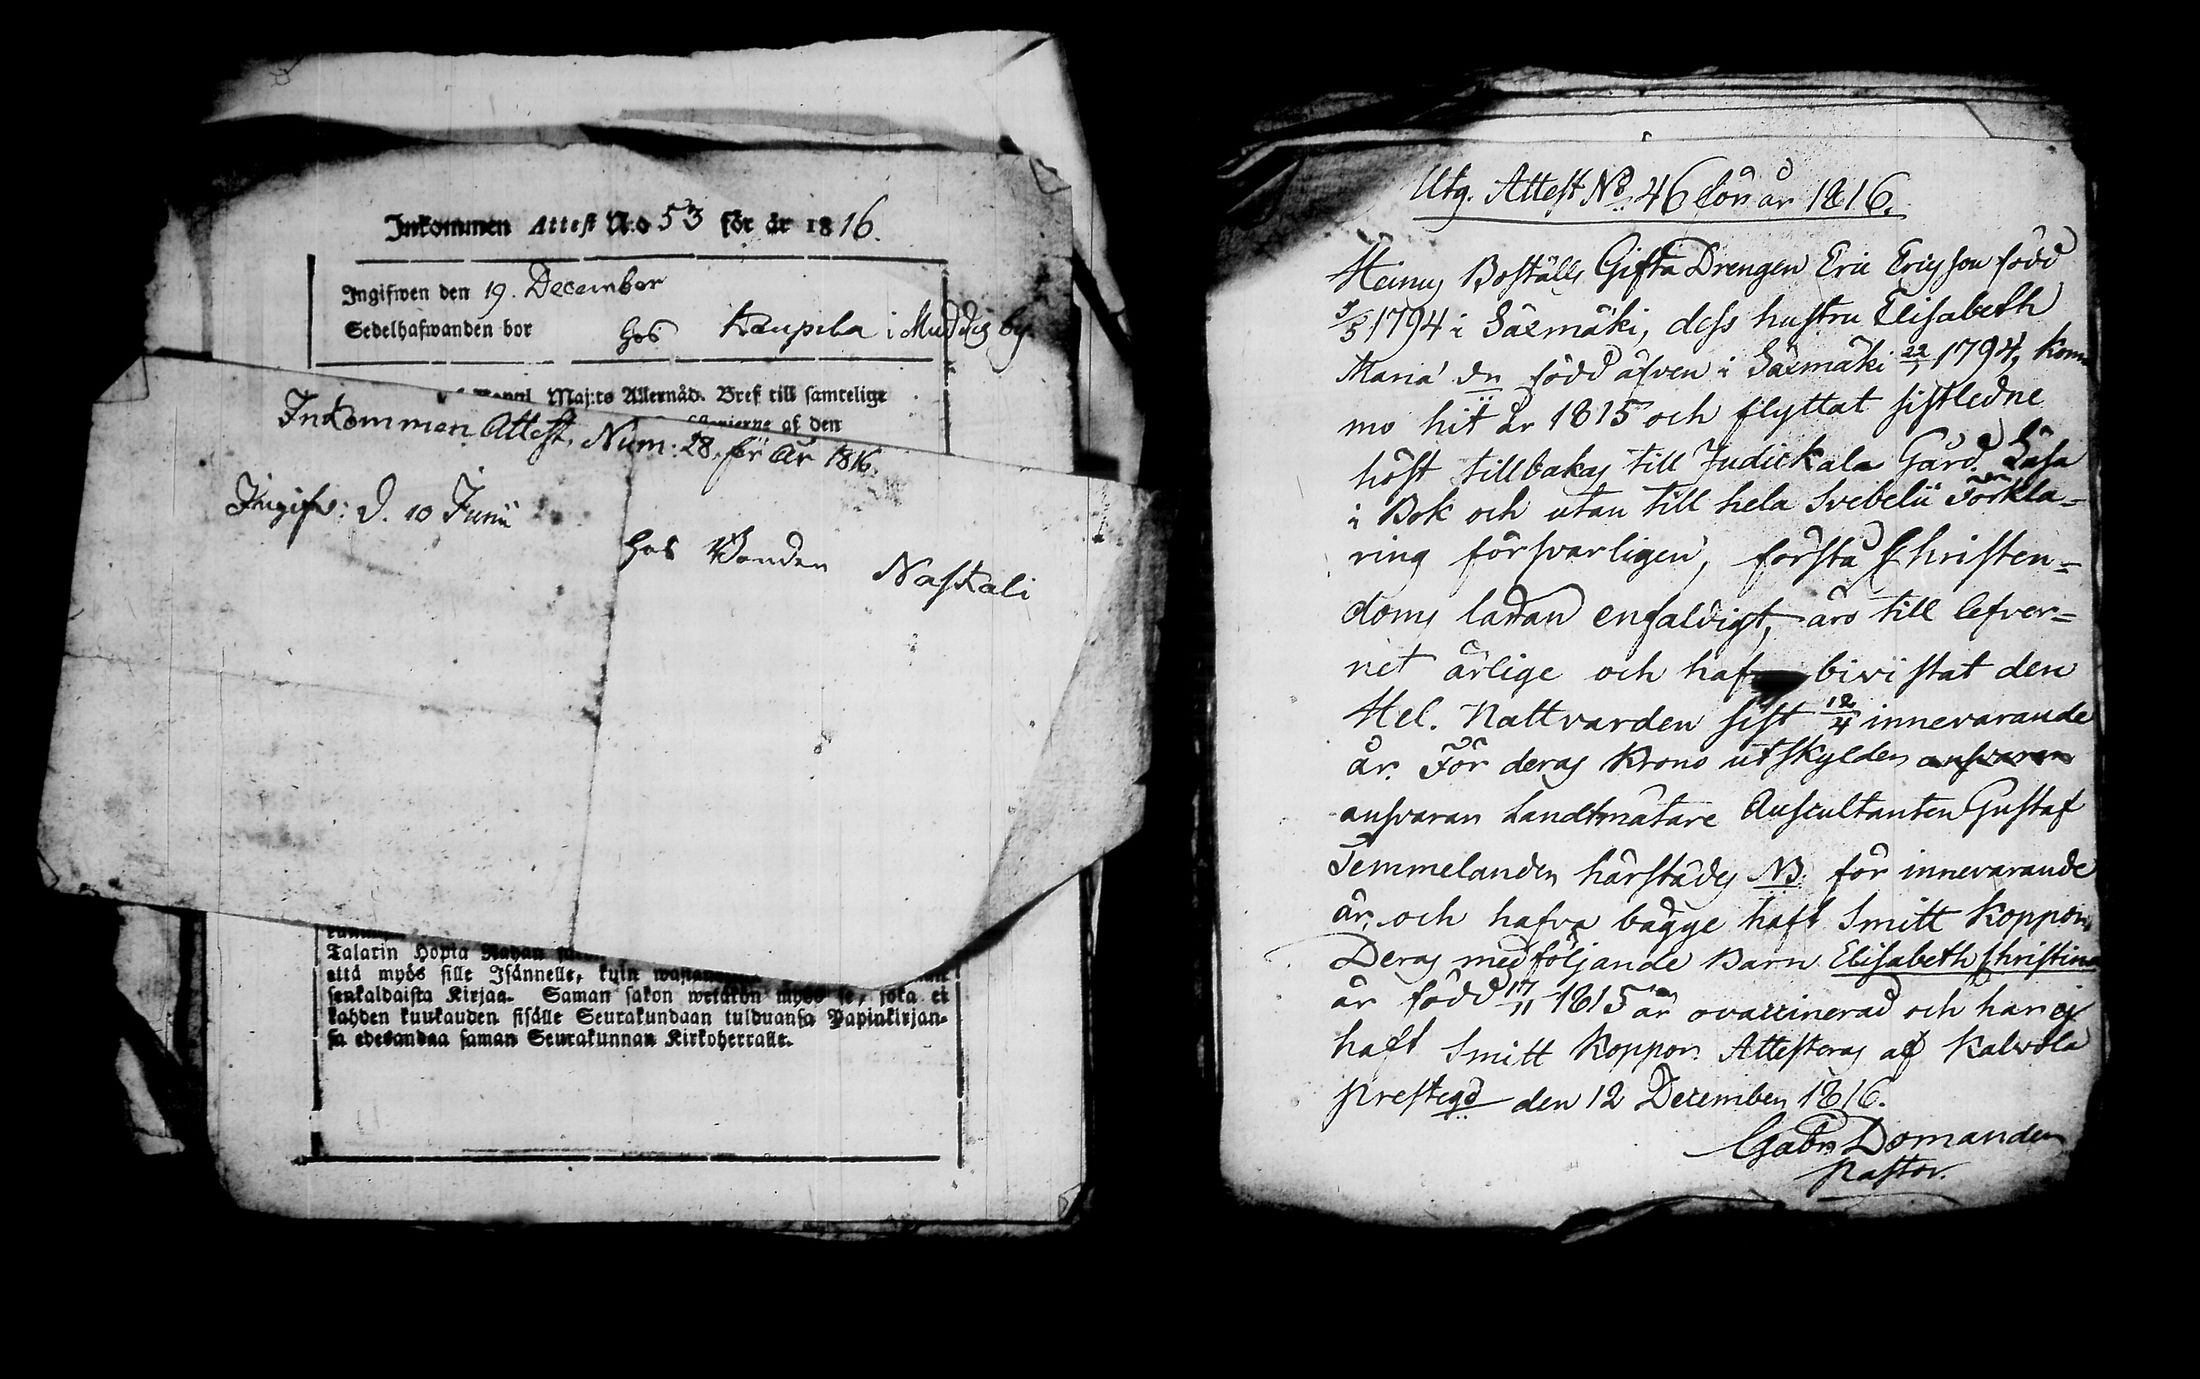 Inkommen Attest N:o 53 för år 1816.
Ingifwen den 19. December
Sedelhafwanden bor hos Kaupila i Muddis by.
Maj:ts Allernåd. Bref till samtelige
af den
Inkommen Attest, Num: 28. för År 1816.
Ingifv: d. 10 Junii
hos Bonden Naskali
Talarin Hopia Rahan
että myös sille Isännelle, kuin
senkaldaista Kirjaa. Saman sakon wetäkön myös se, joka ei
kahden kuukauden sisälle Seurakundaan tulduansa Papinkirjan-
sa edesandaa saman Seurakunnan Kirkoherralle.
Utg. Attest No 46 för år 1816.
Heinus Boställs Gifta Drengen Eric Ericsson född
3/5 1794 i Säxmäki, dess hustru Elisabeth
Maria dr född äfven i Säxmäki 1794, kom
mo hit år 1815 och flyttat sistledne
höst tillbakas till Judickala Gård. Läsa
i Bok och utan till hela Svebelii Förkla-
ring försvarligen, förstå Christen-
doms läran enfaldigt, äro till lefver-
net ärlige och hafva bivistat den
Hel. Nattvarden sist 12/4 innevarande
år. För deras Krono utskylder ansvarar
ansvarar Landtmätare Auscultanten Gustaf
Temmelander härstädes NB för innevarande
år, och hafva bägge haft Smitt Koppor.
Deras medföljande Barn Elisabeth Christina
är född 17/11 1815 är ovaccinerad och har ej
haft Smitt Koppor. Attesteras af Kalvola
Prestegd den 12 December 1816.
Gabr. Domander
Pastor.